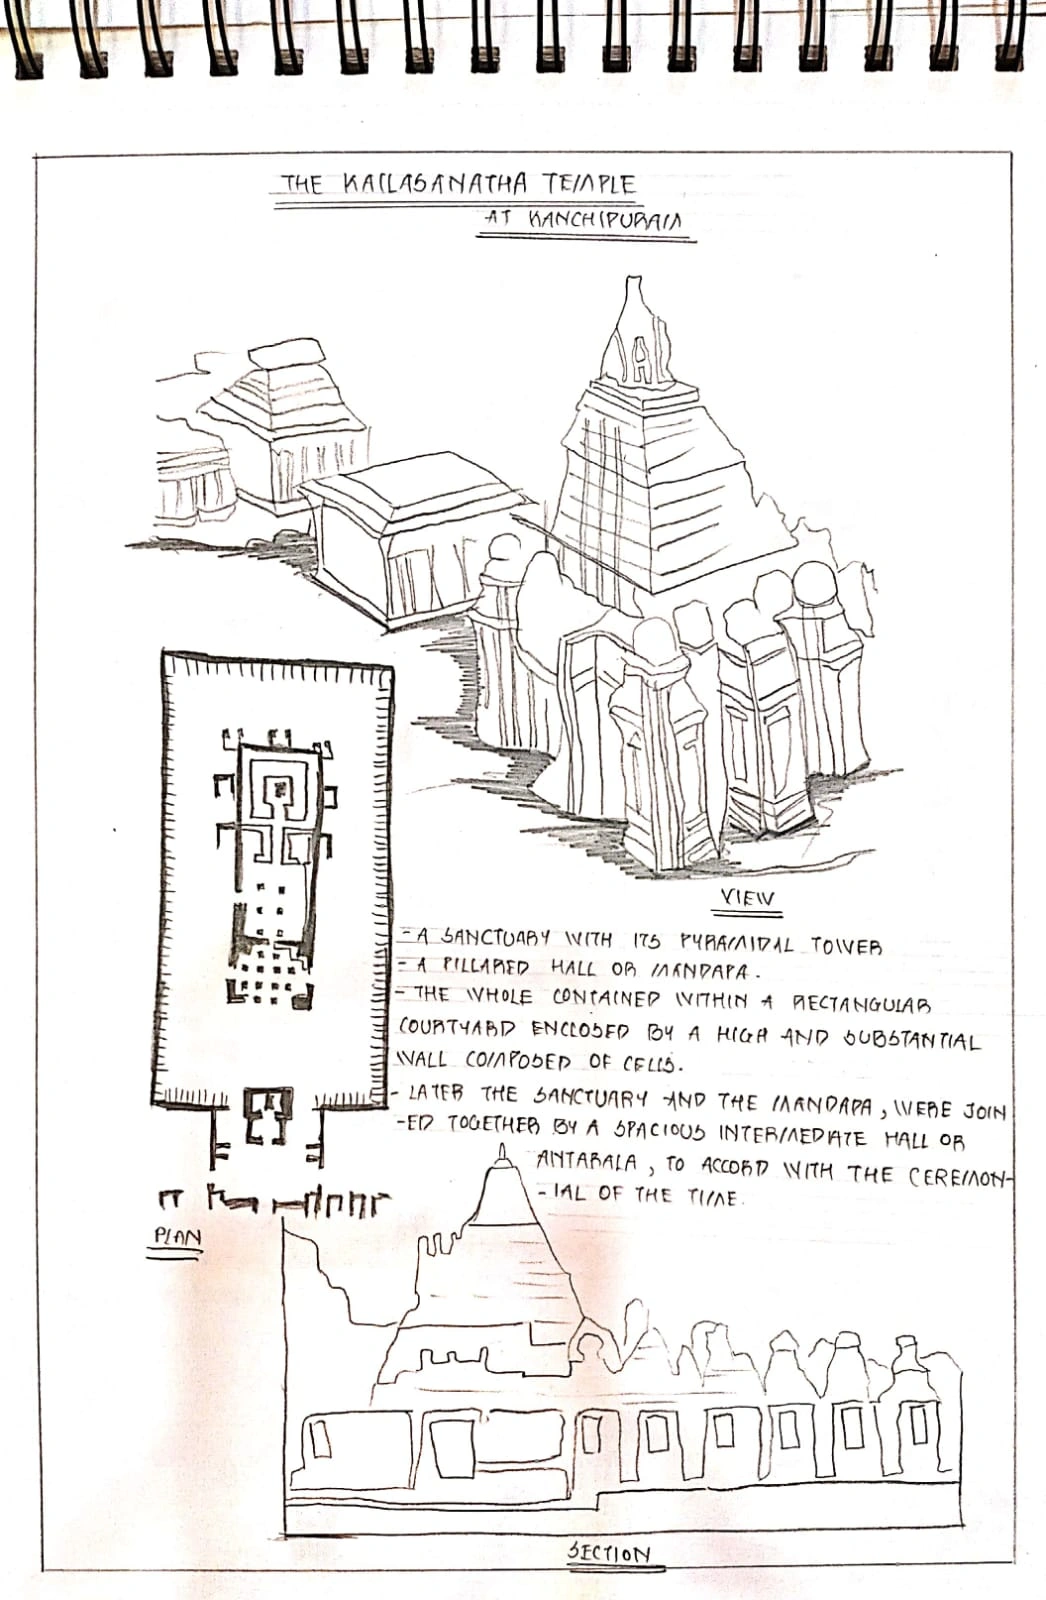 THE KAILASANATHA TEMPLE
AT KANCHIPURAM
VIEW
- A SANCTUARY WITH ITS PYRAMIDAL TOWER
- A PILLARED HALL OR MANDAPA.
- THE WHOLE CONTAINED WITHIN A RECTANGULAR
COURTYARD ENCLOSED BY A HIGH AND SUBSTANTIAL
WALL COMPOSED OF CELLS.
- LATER THE SANCTUARY AND THE MANDAPA, WERE JOIN
-ED TOGETHER BY A SPACIOUS INTERMEDIATE HALL OR
ANTARALA, TO ACCORD WITH THE CEREMON-
-IAL OF THE TIME.
PLAN
SECTION